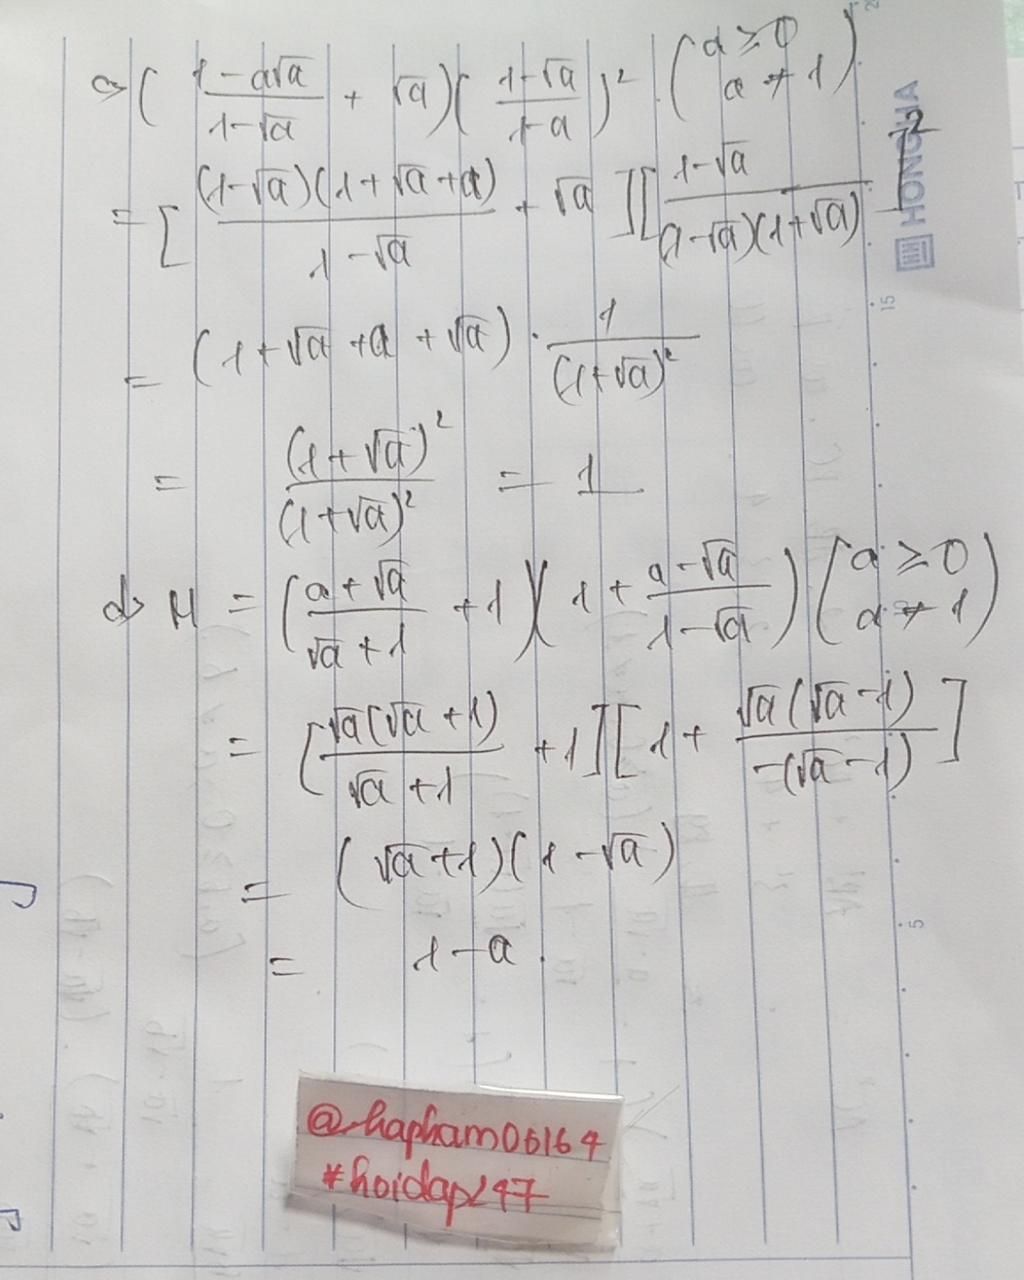 c> ( \frac{1-a\sqrt{a}}{1-\sqrt{a}} + \sqrt{a})( \frac{1-\sqrt{a}}{1-a} )^2 ( a \geq 0 a \neq 1 )
= [ \frac{(1-\sqrt{a})(1+\sqrt{a}+a)}{1-\sqrt{a}} + \sqrt{a} ][ \frac{1-\sqrt{a}}{(1-\sqrt{a})(1+\sqrt{a})} ]^2
= (1+\sqrt{a}+a+\sqrt{a}) \cdot \frac{1}{(1+\sqrt{a})^2}
= \frac{(1+\sqrt{a})^2}{(1+\sqrt{a})^2} = 1
d> M = ( \frac{a+\sqrt{a}}{\sqrt{a}+1} + 1 )( 1 + \frac{a-\sqrt{a}}{1-\sqrt{a}} ) ( a \geq 0 a \neq 1 )
= [ \frac{\sqrt{a}(\sqrt{a}+1)}{\sqrt{a}+1} + 1 ][ 1 + \frac{\sqrt{a}(\sqrt{a}-1)}{-(\sqrt{a}-1)} ]
= (\sqrt{a}+1)(1-\sqrt{a})
= 1-a.
@hapham06164
#hoidap247
HONG HA
15
5